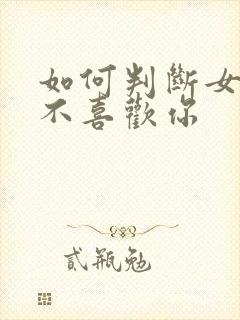 如何判斷女
不喜歡你
貳瓶勉